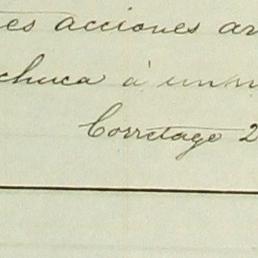 es acciones ar
chuca á
Corretage 2